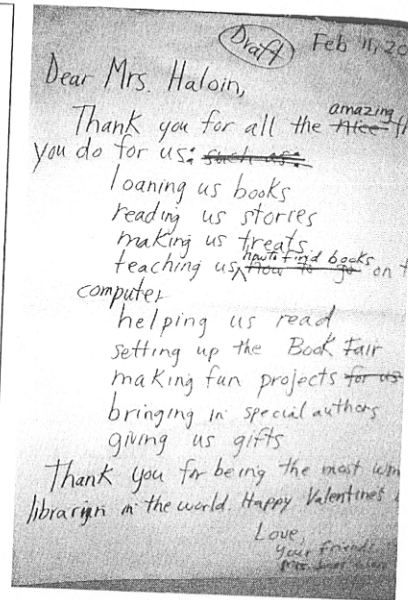 Draft Feb 11, 20
Dear Mrs. Haloin,
amazing
Thank you for all the nice th
you do for us: such as:
loaning us books
reading us stories
making us treats
how to find books
teaching us how to go on t
computer
helping us read
setting up the Book Fair
making fun projects for us
bringing in special authors
giving us gifts
Thank you for being the most won
librarian in the world. Happy Valentines
Love,
Your friends